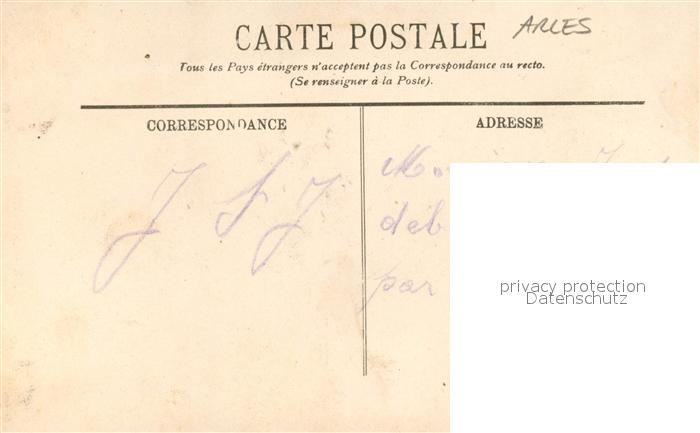 CARTE POSTALE ARLES
Tous les Pays étrangers n'acceptent pas la Correspondance au recto.
(Se renseigner à la Poste).
CORRESPONDANCE
ADRESSE
J. S. J.
par
privacy protection
Datenschutz